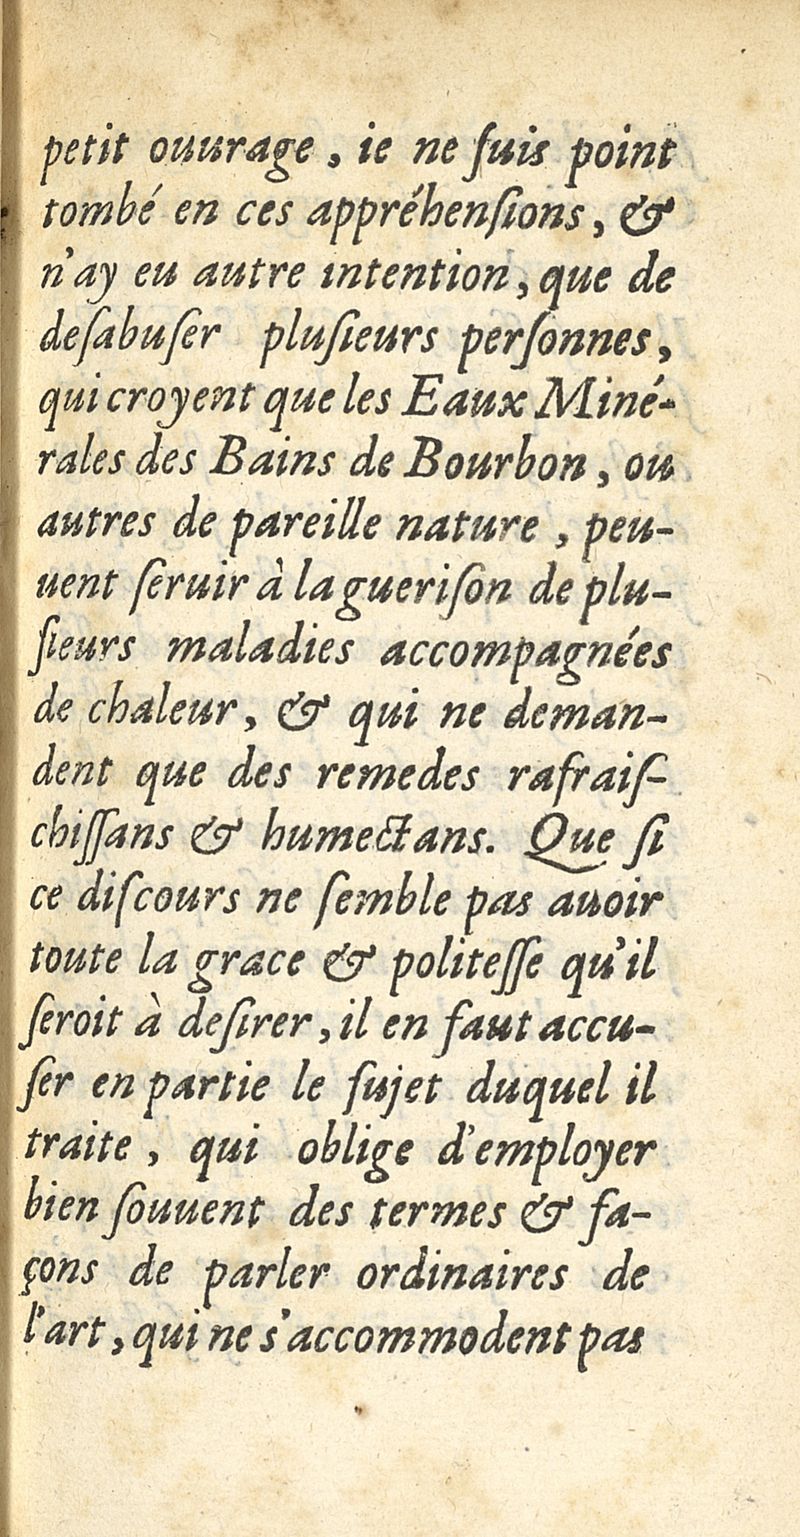 petit ouurage, ie ne ſuis point
tombé en ces appréhenſions, &
n'ay eu autre intention, que de
deſabuſer pluſieurs perſonnes,
qui croyent que les Eaux Miné-
rales des Bains de Bourbon, ou
autres de pareille nature, peu-
uent ſeruir à la gueriſon de plu-
ſieurs maladies accompagnées
de chaleur, & qui ne deman-
dent que des remedes rafraiſ-
chiſſans & humectans. Que ſi
ce diſcours ne ſemble pas auoir
toute la grace & politeſſe qu'il
ſeroit à deſirer, il en faut accu-
ſer en partie le ſujet duquel il
traite, qui oblige d'employer
bien ſouuent des termes & fa-
çons de parler ordinaires de
l'art, qui ne s'accommodent pas